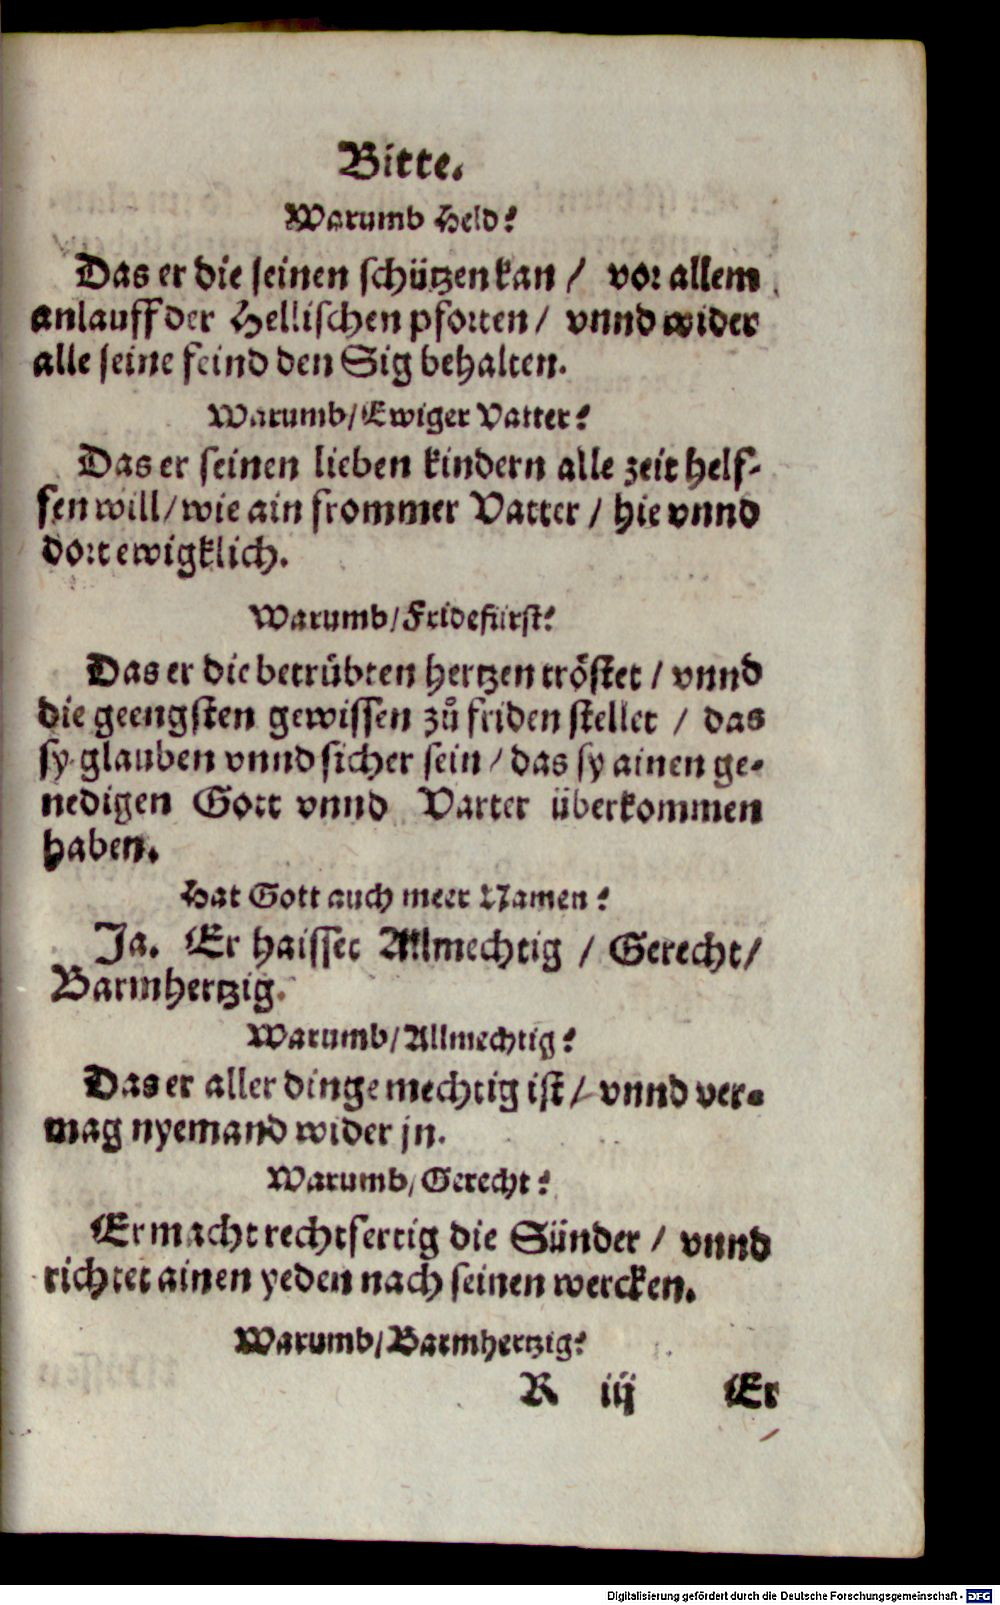 Bitte.
Warumb Held?
Das er die seinen schützen kan / vor allem
anlauff der Hellischen pforten / vnnd wider
alle seine feind den Sig behalten.
Warumb / Ewiger Vatter?
Das er seinen lieben kindern alle zeit helf-
fen will / wie ain frommer Vatter / hie vnnd
dort ewigklich.
Warumb / Fridefürst?
Das er die betrübten hertzen tröstet / vnnd
die geengsten gewissen zů friden stellet / das
sy glauben vnnd sicher sein / das sy ainen ge-
nedigen Gott vnnd Vatter überkommen
haben.
Hat Gott auch meer Namen?
Ja. Er haisset Allmechtig / Gerecht /
Barmhertzig.
Warumb / Allmechtig?
Das er aller dinge mechtig ist / vnnd ver-
mag nyemand wider jn.
Warumb / Gerecht?
Er macht rechtfertig die Sünder / vnnd
richtet ainen yeden nach seinen wercken.
Warumb / Barmhertzig?
R iij Er
Digitalisierung gefördert durch die Deutsche Forschungsgemeinschaft - DFG